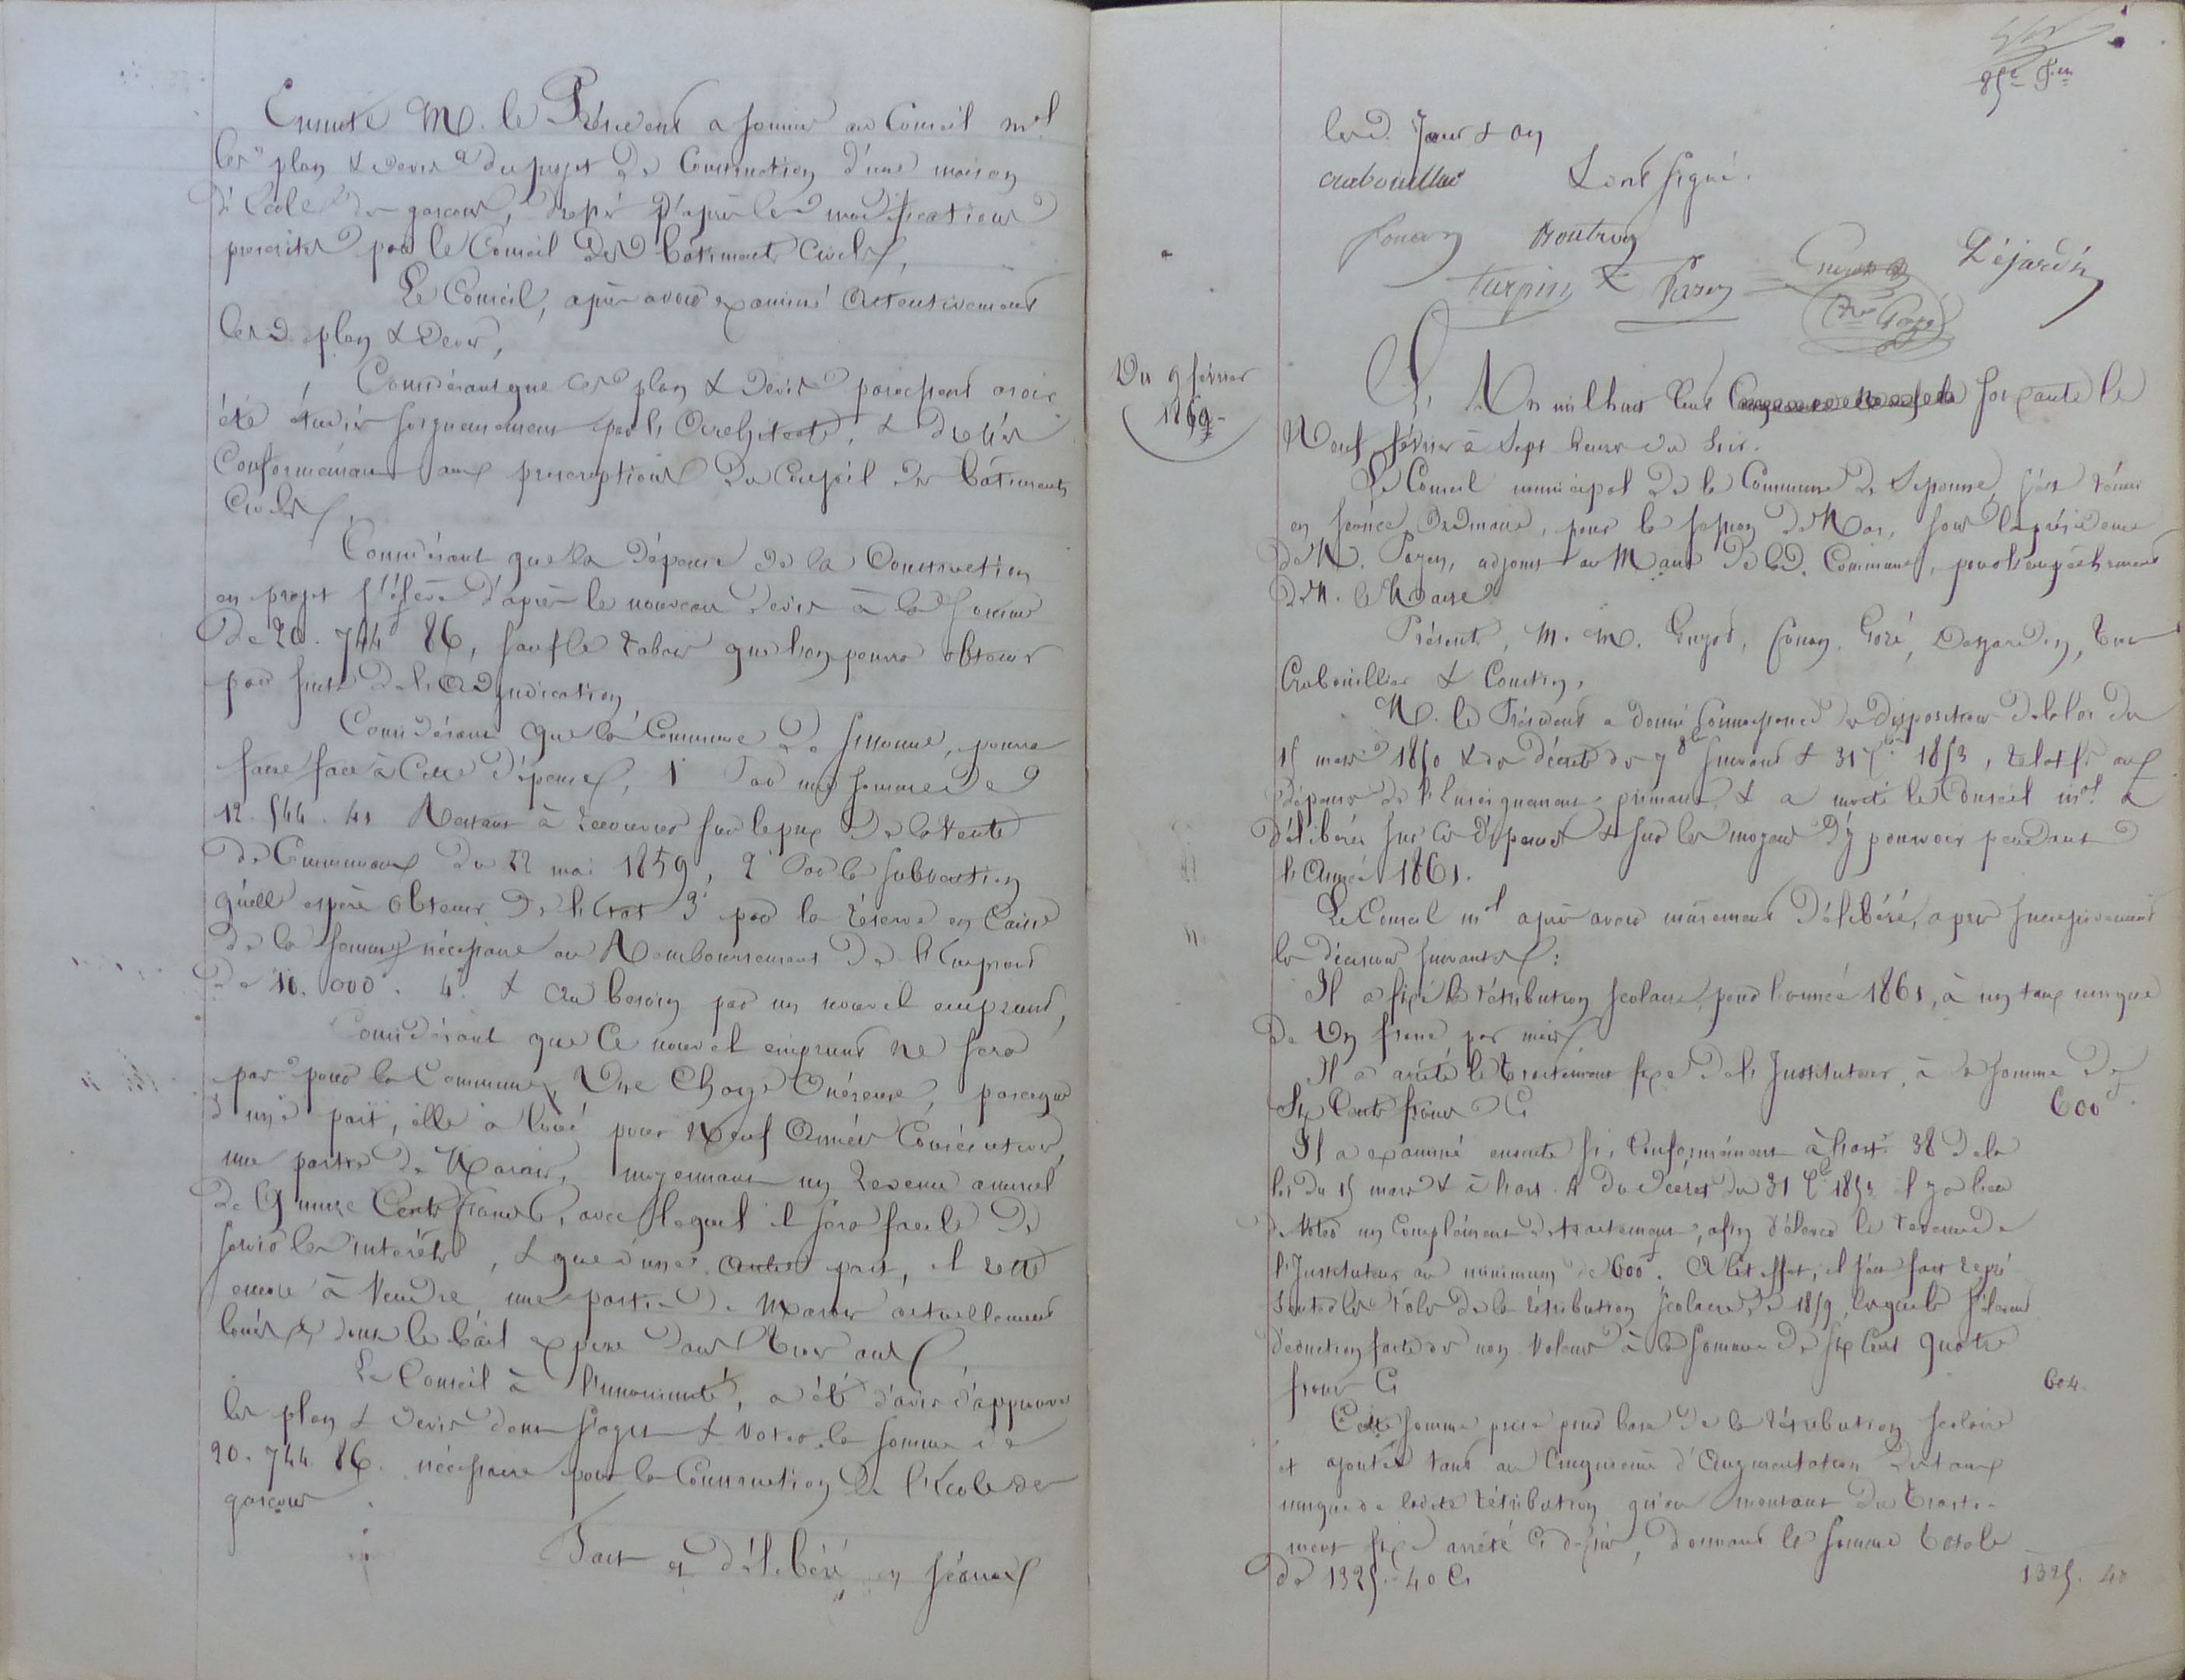 Ensuite M. le Président a soumis au Conseil mal
les plan & devis du projet de Construction d'une maison
d'école de garçons, dressés d'après les modifications
prescrites par le Conseil des bâtiments Civils,
Le Conseil, après avoir examiné attentivement
lesd. plan & devis,
Considérant que ces plan & devis paroissent avoir
été étudiés soigneusement par l'Architecte, &
Conformément aux prescriptions du Conseil des bâtiments
Civils,
Considérant que la dépense de la Construction
en projet s'élève d'après le nouveau devis à la somme
de 20.744f 86, sauf le rabais que l'on pourra obtenir
par suite de l'Adjudication,
Considérant que la Commune de Sissonne, pourra
faire face à Cette dépense, 1° Par une somme de
12.544.41 Restant à recouvrer sur le prix de la Vente
de Communaux du 22 mai 1859, 2° Par la subvention
qu'elle espère obtenir de l'Etat 3° par la réserve en Caisse
de la somme nécessaire au Remboursement de l'Emprunt
de 10.000f. 4° & Au besoin par un nouvel emprunt,
Considérant que Ce nouvel emprunt ne sera
pas pour la Commune Une Charge Onéreuse, parceque
d'une part, elle a loué pour Neuf Années Consécutives,
une partie de Marais, moyennant un Revenu annuel
de Onze Cents francs, avec lequel il sera facile de
servir les intérêts, & que d'une Autre part, il reste
encore à Vendre une partie de Marais actuellement
loués, & dont le bail expire dans trois ans,
Le Conseil à l'unanimité, a été d'avis d'approuver
les plan & devis dont s'agit & Voter la somme de
20.744.86. nécessaire pour la Construction de l'Ecole de
garçons.
Fait et délibéré en séance
lesd. Jour & an
Crabouillier & ont signé.
Fouan
Turpin Payen Dejardin
Du 9 février
1860
L'An mil huit Cent soixante le
Neuf février à Sept heures du soir.
Le Conseil municipal de la Commune de Sissonne, s'est réuni
en séance Ordinaire, pour la session de Mai, sous la présidence
de M. Payen, adjoint au Maire de lad. Commune, pour l'empêchement
de M. le Maire.
Présents, M. M. Guyot, Fouan, Goré, Desjardin,
Crabouillier & Courtin,
M. le Président a donné Connaissance des dispositions de la loi du
15 mars 1850 & des décrets des 7 8bre suivant & 31 Xbre 1853, relatifs aux
dépenses de l'Enseignement primaire, & a invité le Conseil mal à
délibérer sur Ces dépenses & sur les moyens d'y pourvoir pendant
l'Année 1861.
Le Conseil mal après avoir mûrement délibéré, a pris successivement
les décisions suivantes:
Il a fixé la rétribution scolaire, pour l'année 1861, à un taux unique
de Un franc par mois
Il a arrêté le traitement fixe de l'Instituteur, à la somme de
Six Cents francs Ci 600f.
Il a examiné ensuite si, Conformément à l'art. 38 de la
loi du 15 mars & à l'art. 4 du décret du 31 Xbre 1853 il y a lieu
de Voter un Complément de traitement, afin d'élever le revenu de
l'Instituteur au minimum de 600f. A Cet effet, il s'est fait repré
senter les rôles de la rétribution Scolaire de 1859, lesquels s'élèvent
déduction faite des non Valeurs à la somme de six Cent quatre
francs Ci 604.
Cette somme prise pour base de la rétribution scolaire
et ajoutée tant au Cinquième d'Augmentation du taux
unique de ladite rétribution qu'au montant du traite-
ment fixe arrêté Ci dessus, donnant la somme totale
de 1325.40 Ci 1325.40